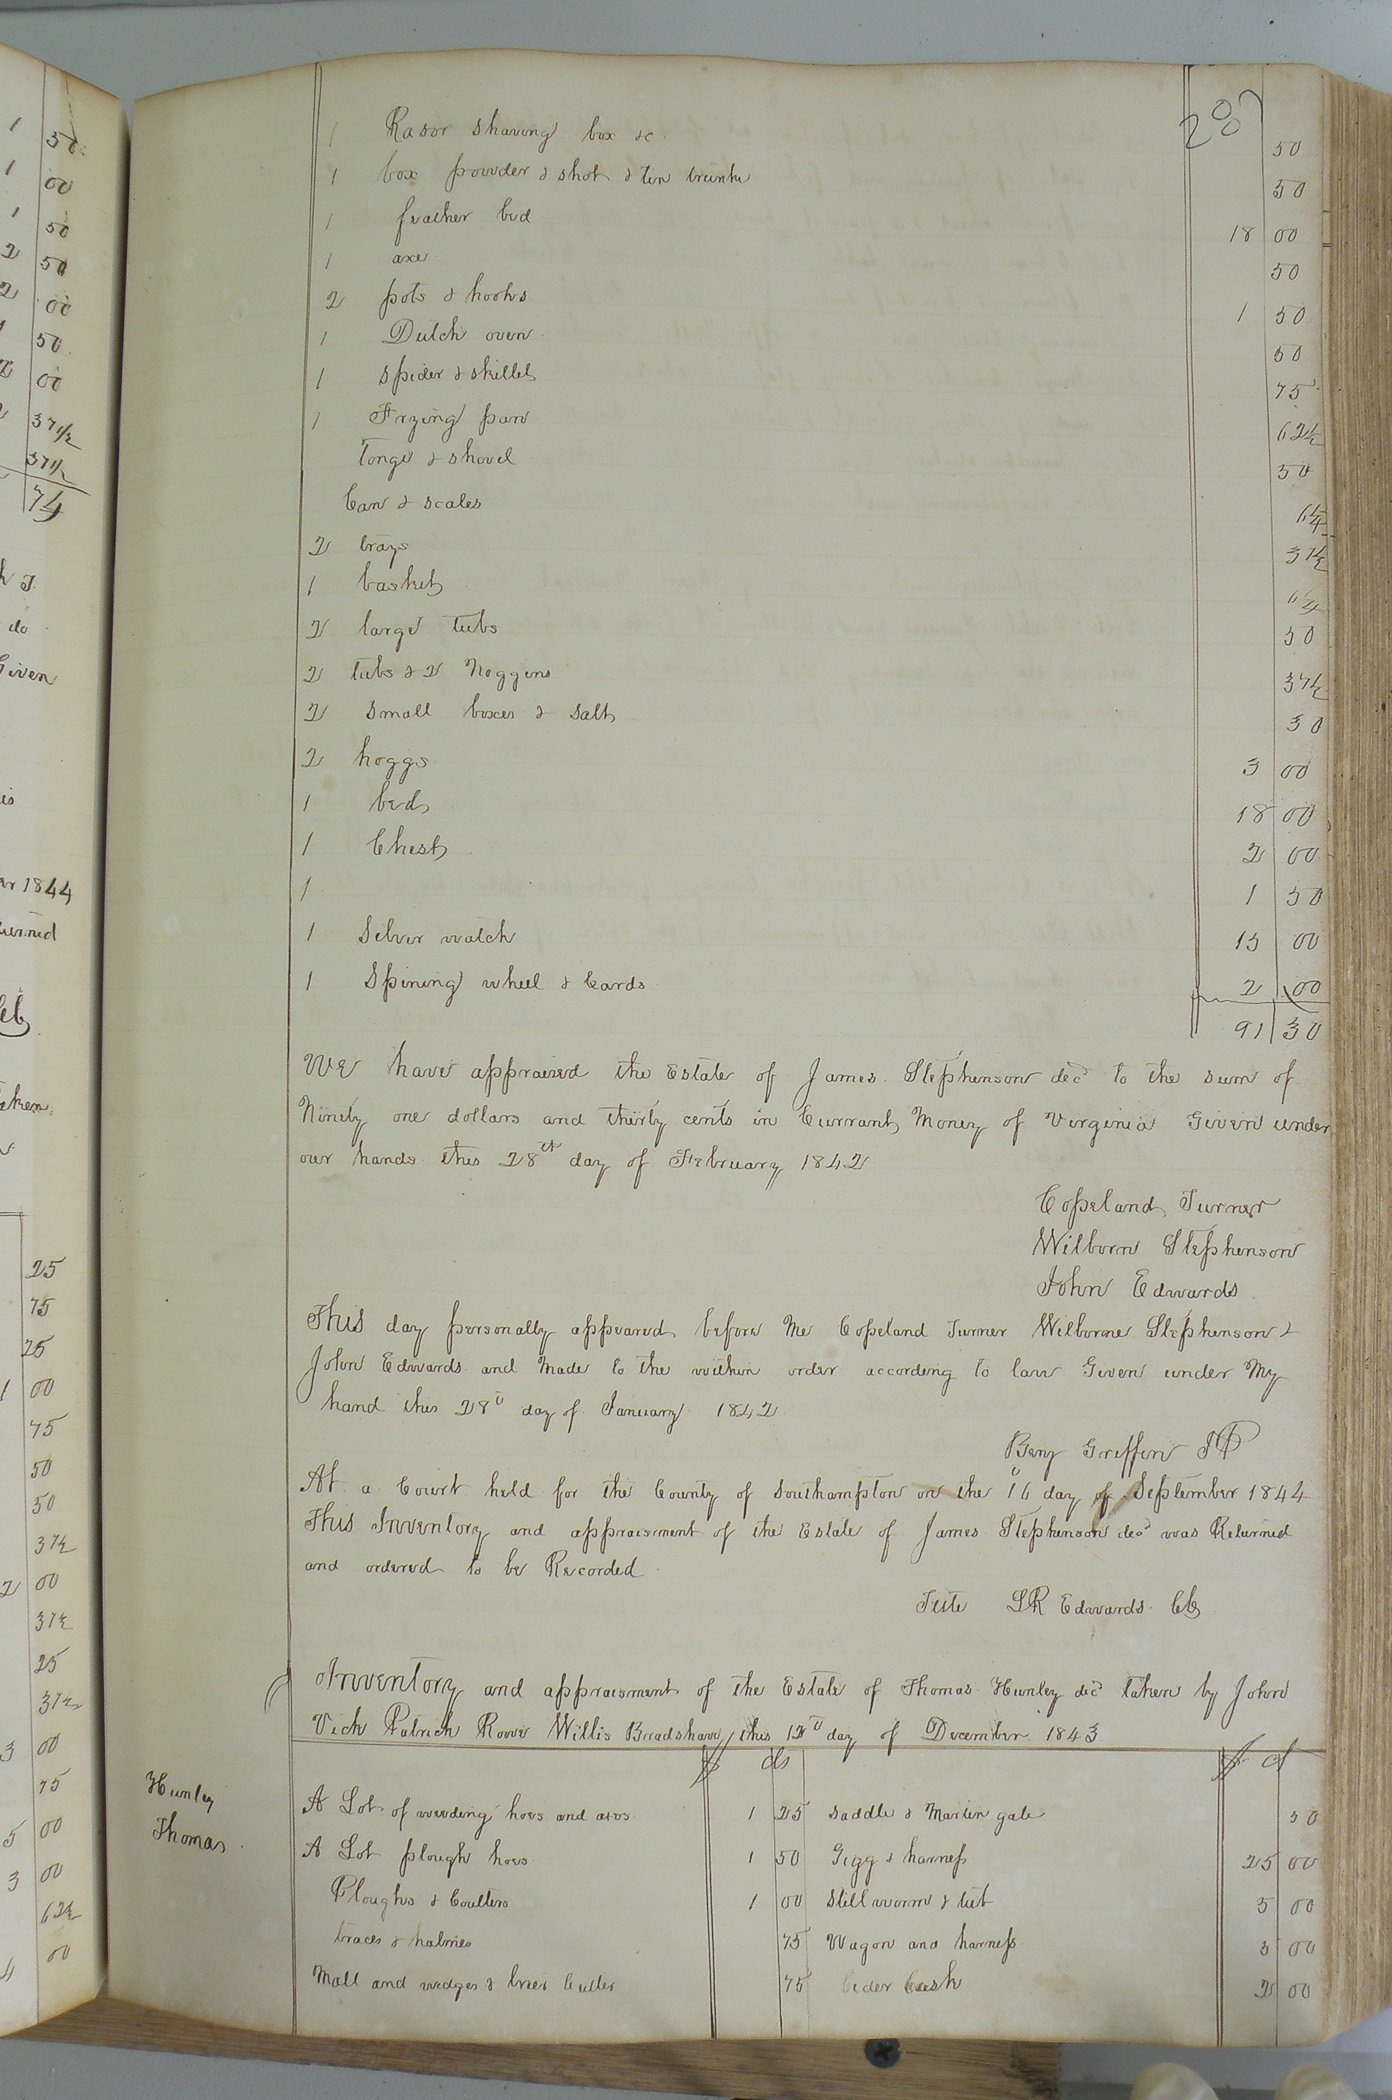 1 50
1 00
1 50
2 50
2 00
50
2 00
37 1/2
37 1/2
74
do
Given
is
er 1844
turned
aken
25
75
25
1 00
75
50
50
37 1/2
2 00
37 1/2
25
37 1/2
3 00
75
5 00
3 00
62 1/2
4 00
287
1 Rasor shaving box &c 50
1 box powder & shot & tin trunk 50
1 feather bed 18 00
1 axe 50
2 pots & hooks 1 50
1 Dutch oven 50
1 spider & skillet 75
1 Frying pan 62 1/2
Tongs & shovel 50
Can & scales 6 1/4
2 trays 37 1/2
1 basket 6 1/4
2 large tubs 50
2 tubs & 2 Noggins 37 1/2
2 small boxes & salt 30
2 hoggs 3 00
1 bed 18 00
1 Chest 2 00
1 1 50
1 Silver watch 15 00
1 Spining wheel & Cards 2 00
91 30
We have appraised the Estate of James Stephenson decd to the sum of
Ninety one dollars and thirty cents in Currant Money of Virginia Given under
our hands this 28th day of February 1842
Copeland Turner
Wilborn Stephenson
John Edwards
This day personally appeared before Me Copeland Turner Wilborne Stephenson &
John Edwards and Made to the within order according to law Given under My
hand this 28th day of January 1842
Benj Griffin JP
At a Court held for the County of Southampton on the 16 day of September 1844
This Inventory and appraisment of the Estate of James Stephenson decd was Returned
and ordered to be Recorded
Teste LR Edwards CC
Inventory and appraisment of the Estate of Thomas Hunley decd taken by John
Vick Patrick Rowe Willis Bradshaw this 12th day of December 1843
Hunley
Thomas
$ cts $ ct
A Lot of weeding hoes and axes 1 25 Saddle & Martin gale 50
A Lot plough hoes 1 50 Gigg & harness 25 00
Ploughs & Coulters 1 00 Still worm & tub 5 00
traces & halmes 75 Wagon and harness 5 00
Mall and wedges & brier Cutter 75 Cider Cask 2 00